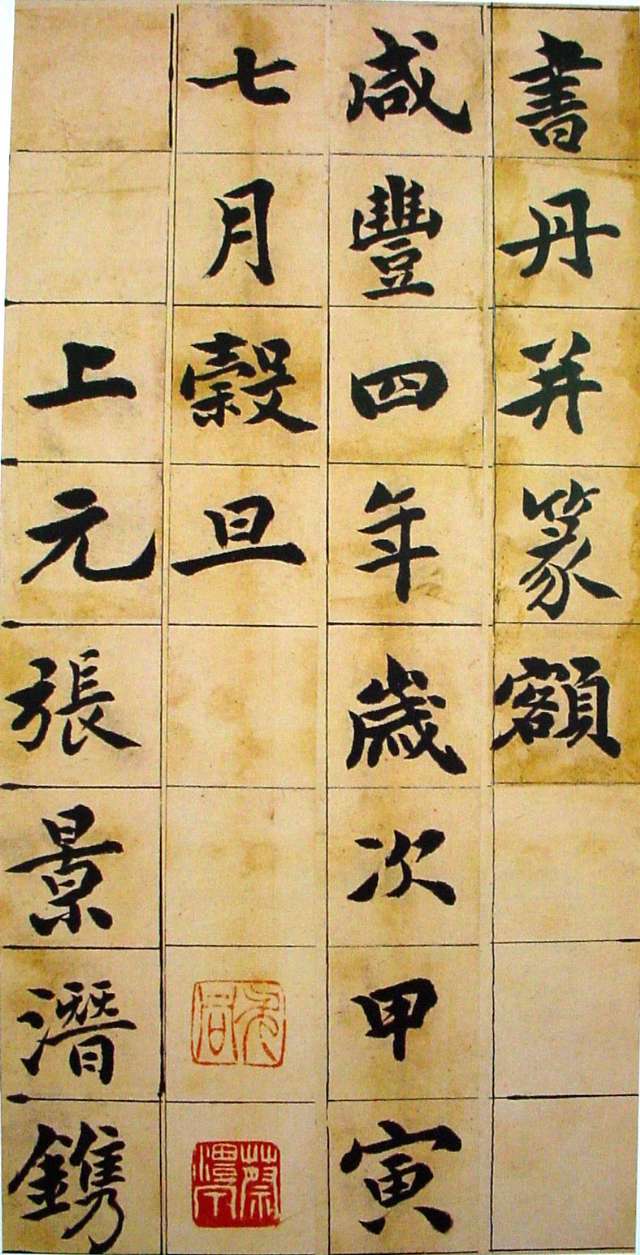 書丹并篆額
咸豐四年歲次甲寅
七月穀旦
上元張景潛鐫